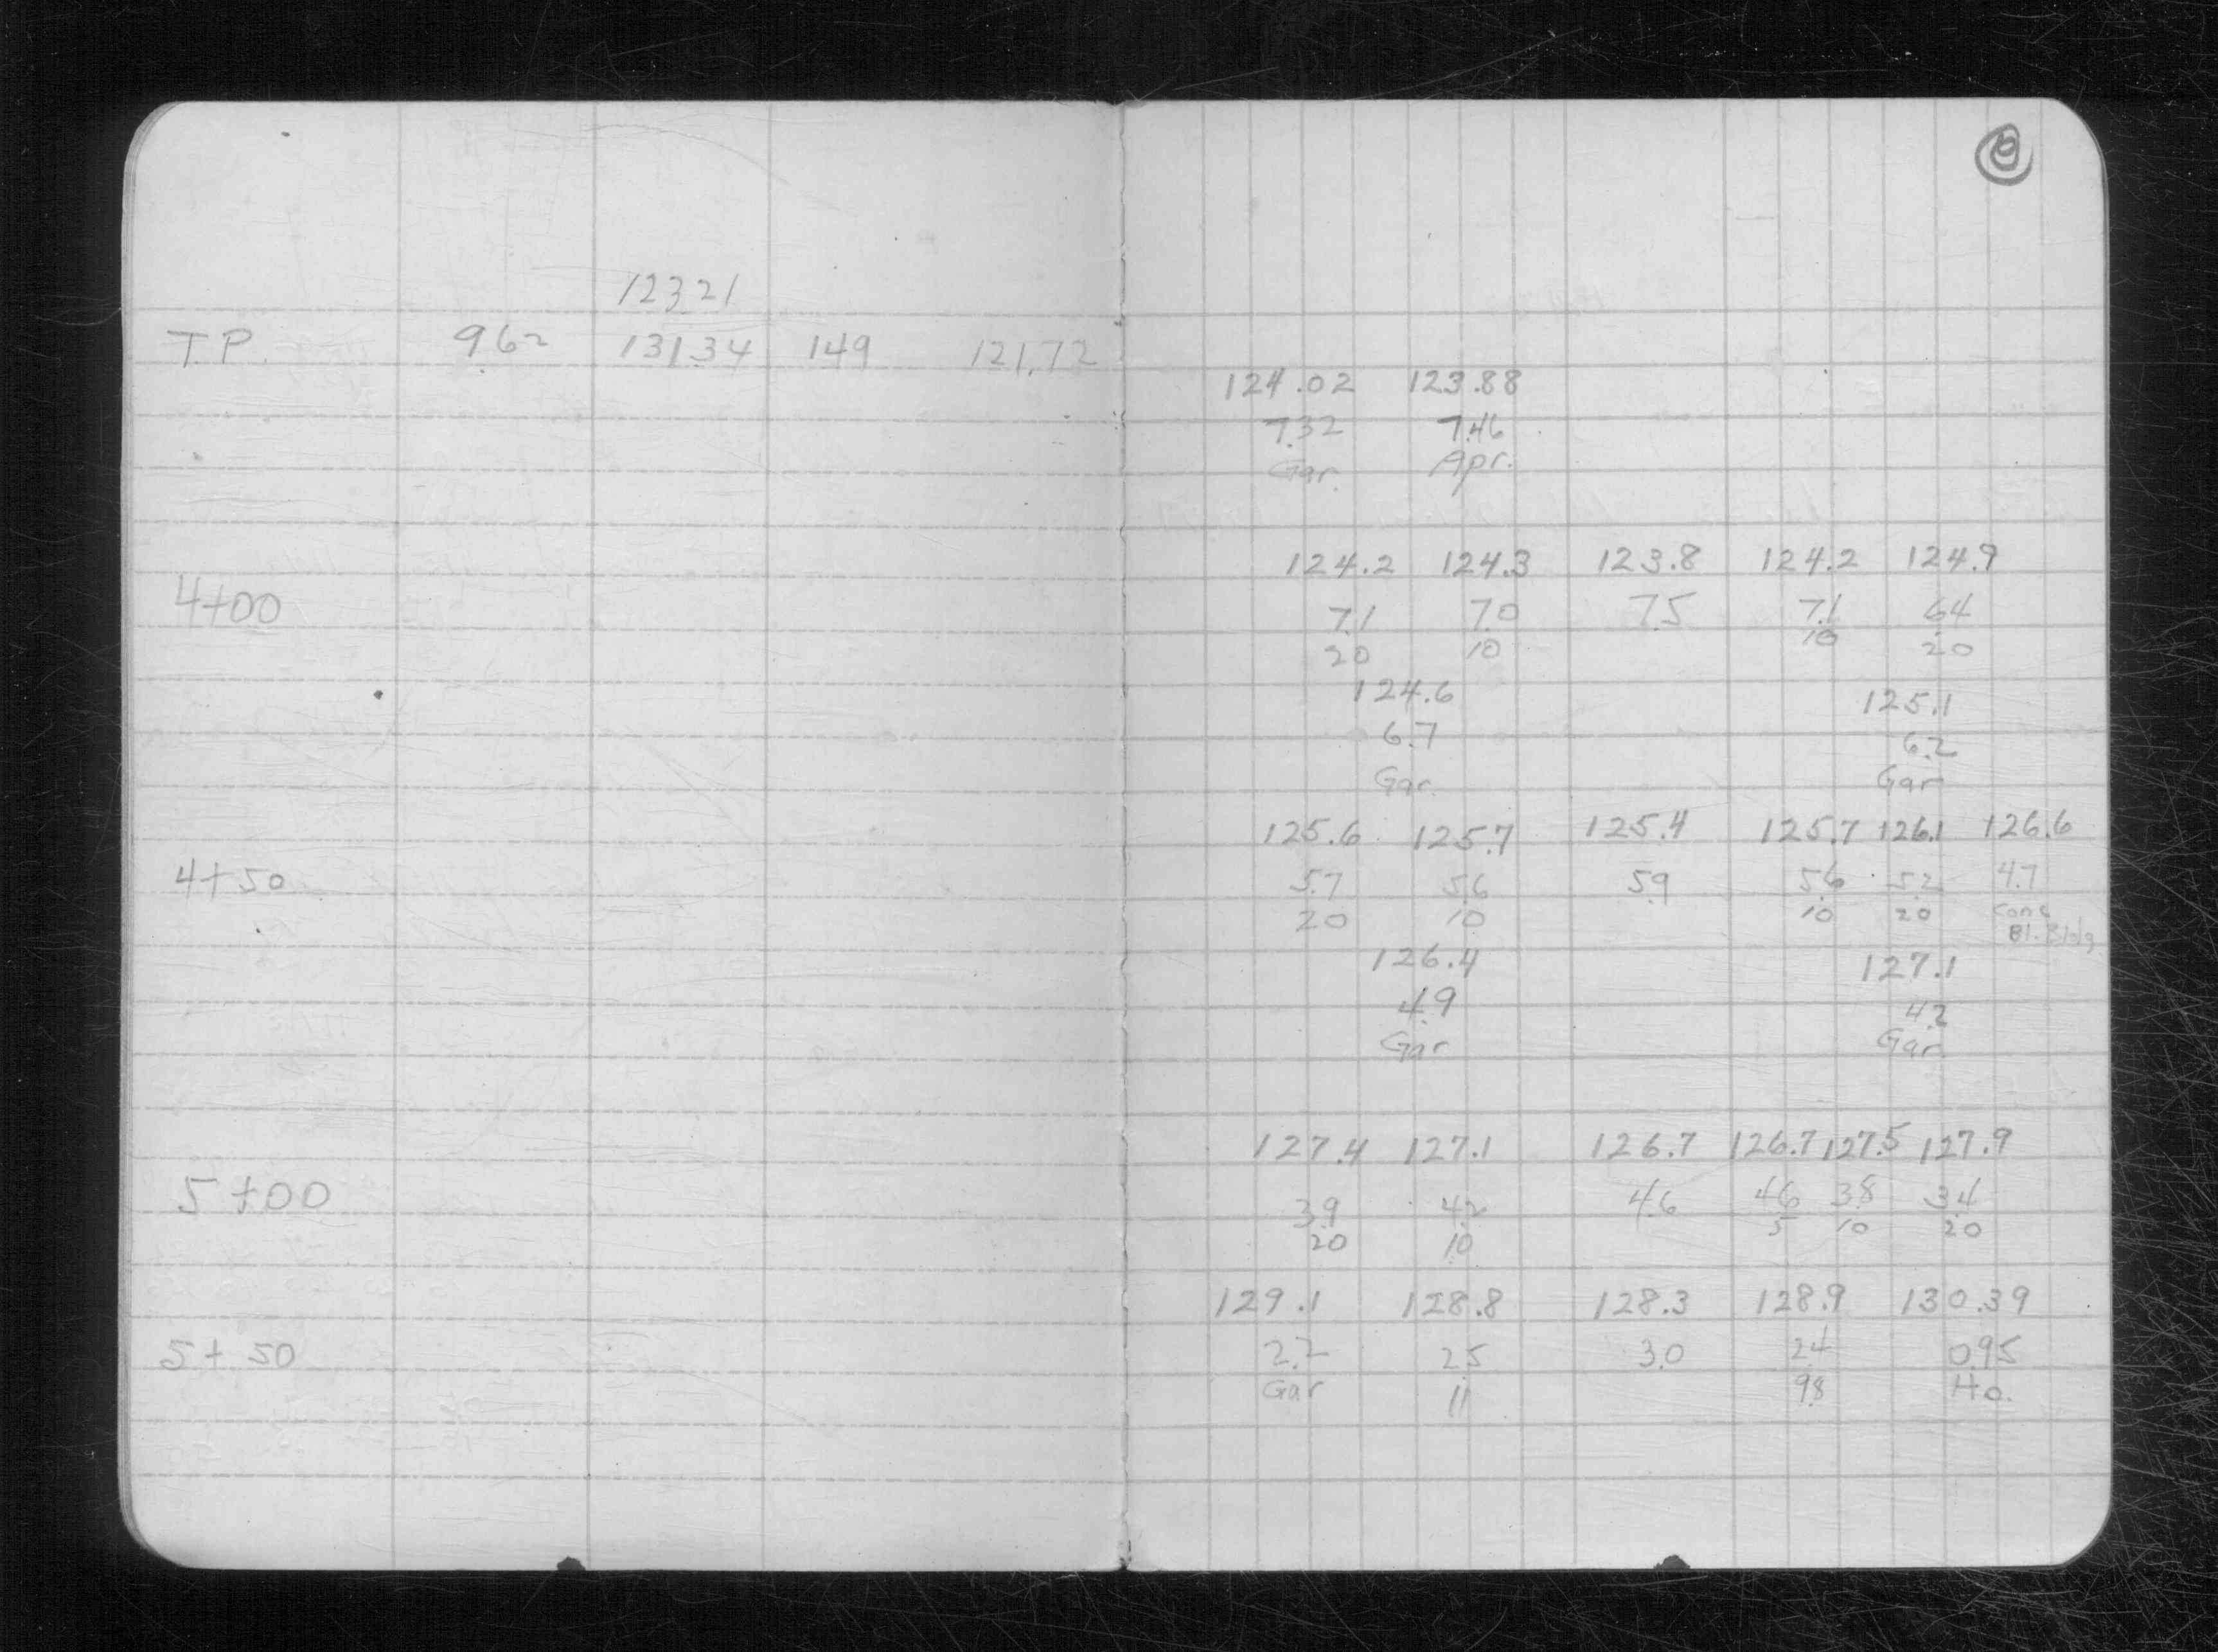 123.21
T.P. 9.62 131.34 1.49 121.72
124.02 123.88
7.32 7.46
Gar. Apr.
124.2 124.3 123.8 124.2 124.9
4+00 7.1 7.0 7.5 7.1 6.4
20 10 10 20
124.6 125.1
6.7 6.2
Gar. Gar
125.6 125.7 125.4 125.7 126.1 126.6
4+50 5.7 5.6 5.9 5.6 5.2 4.7
20 10 10 20 Conc
Bl. Bldg
126.4 127.1
4.9 4.2
Gar Gar.
127.4 127.1 126.7 126.7 127.5 127.9
5+00 3.9 4.2 4.6 4.6 3.8 3.4
20 10 5 10 20
129.1 128.8 128.3 128.9 130.39
5+50 2.2 2.5 3.0 2.4 0.95
Gar 11 9.8 Ho.